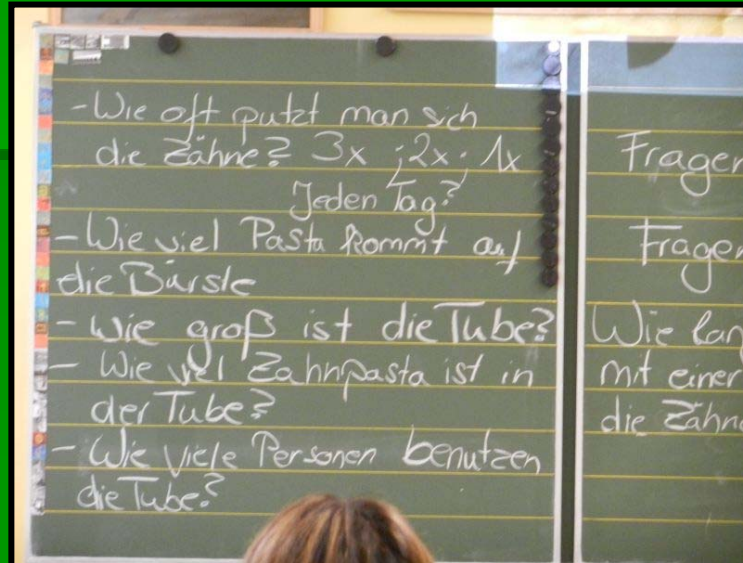 -Wie oft putzt man sich
die Zähne? 3x ; 2x ; 1x
Jeden Tag?
-Wie viel Pasta kommt auf
die Bürste
- Wie groß ist die Tube?
- Wie viel Zahnpasta ist in
der Tube?
- Wie viele Personen benutzen
die Tube?
Fragen
Fragen
Wie lan
mit einer
die Zähne